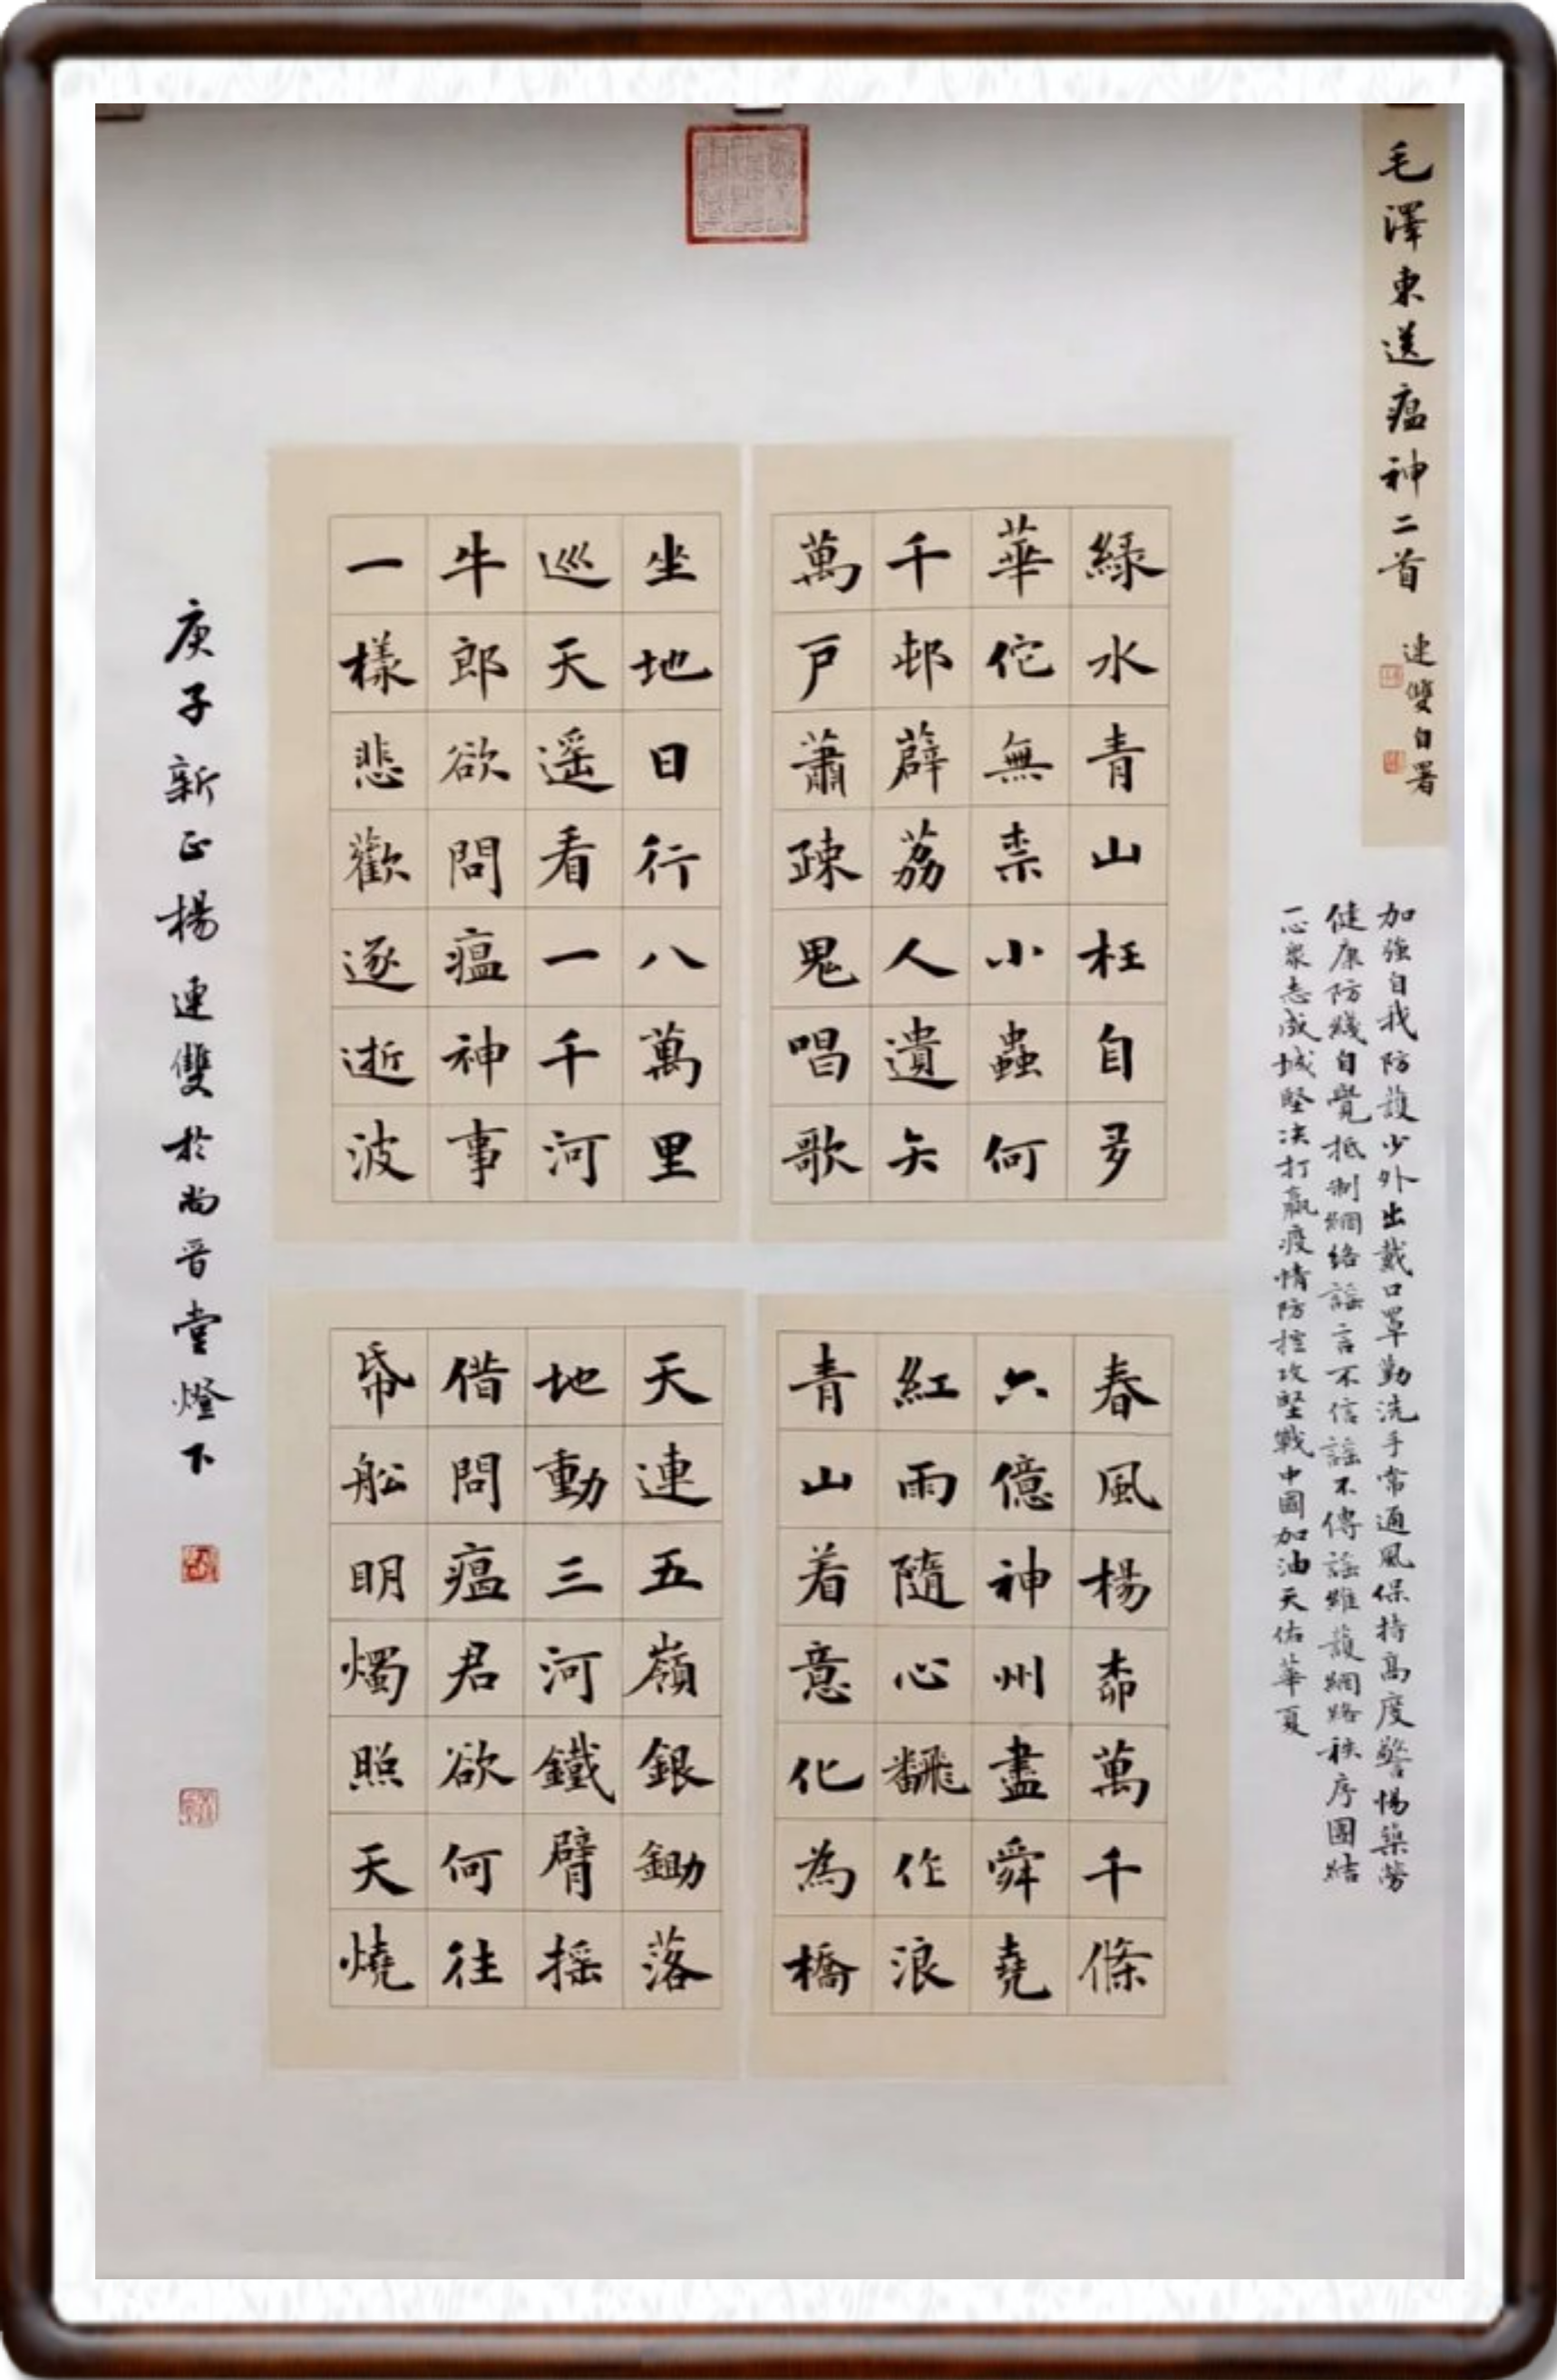 毛澤東送瘟神二首
連雙自署
加強自我防護少外出戴口罩勤洗手常通風保持高度警惕築勞
健康防綫自覺抵制網絡謡言不信謡不傳謡維護網路秩序團結
一心衆志成城堅决打贏疫情防控攻堅戰中國加油天佑華夏
綠水青山枉自多
華佗無柰小蟲何
千邨薜荔人遺矢
萬户蕭疎鬼唱歌
坐地日行八萬里
巡天遥看一千河
牛郎欲問瘟神事
一樣悲歡逐逝波
春風楊桺萬千條
六億神州盡舜堯
紅雨隨心飜作浪
青山着意化為橋
天連五嶺銀鋤落
地動三河鐵臂摇
借問瘟君欲何往
帋船明燭照天燒
庚子新正楊連雙於尚晋堂燈下